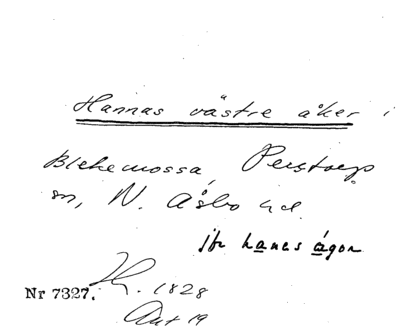 Hannas västre åker i
Blekemossa, Perstorp
sn, N. Åsbo hd.
jfr hanas ágon
Nr 7327. 1828
Akt 19